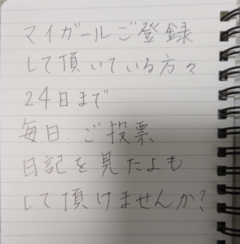 マイガールご登録
して頂いている方々
24日まで
毎日、ご投票
日記を見たよも
して頂けませんか?